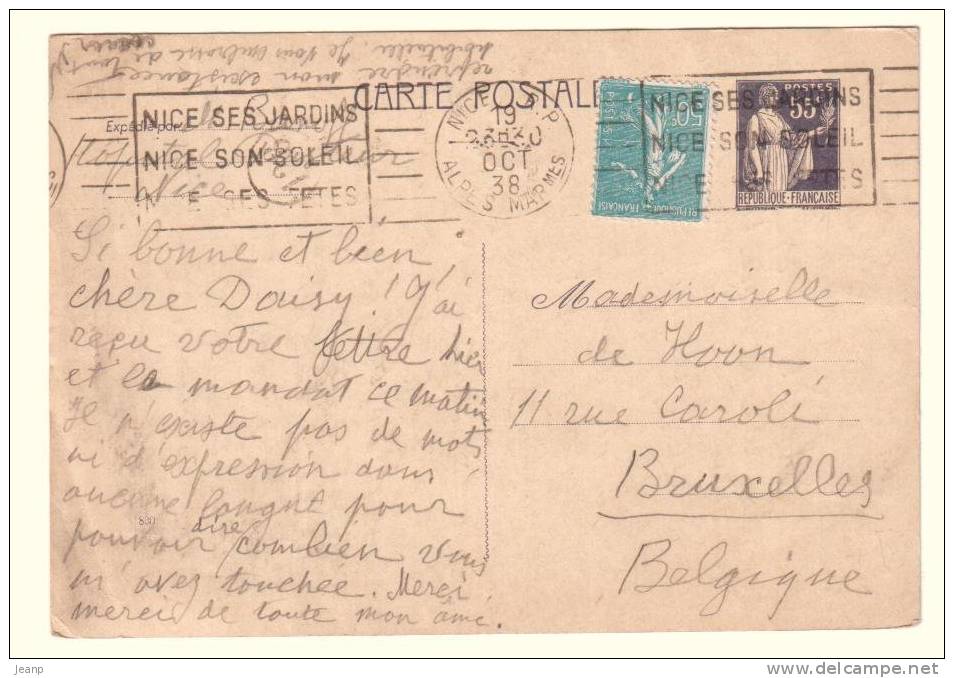 reprendre mon existence
habituelle. Je vous embrasse de tout
cœur
CARTE POSTALE
Expédié par
Nice
NICE SES JARDINS
NICE SON SOLEIL
NICE SES FETES
NICE R.P
19
23H30
OCT
38
ALPES MARMES
50c
POSTES
REPUBLIQUE FRANÇAISE
NICE SES JARDINS
NICE SON SOLEIL
POSTES
55c
REPUBLIQUE·FRANÇAISE
Si bonne et bien
chère Daisy! J'ai
reçu votre lettre hier
et le mandat ce matin
Il n'existe pas de mots
ni d'expression dans
aucune langue pour
pouvoir dire combien vous
m'avez touchée. Merci
merci de toute mon âme.
830
Mademoiselle
de Hoon
11 rue Caroli
Bruxelles
Belgique
Jeanp
Posted on www.delcampe.net